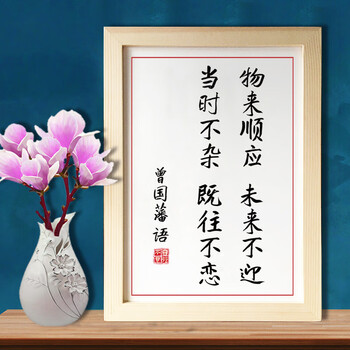 物来顺应 未来不迎
当时不杂 既往不恋
曾国藩语